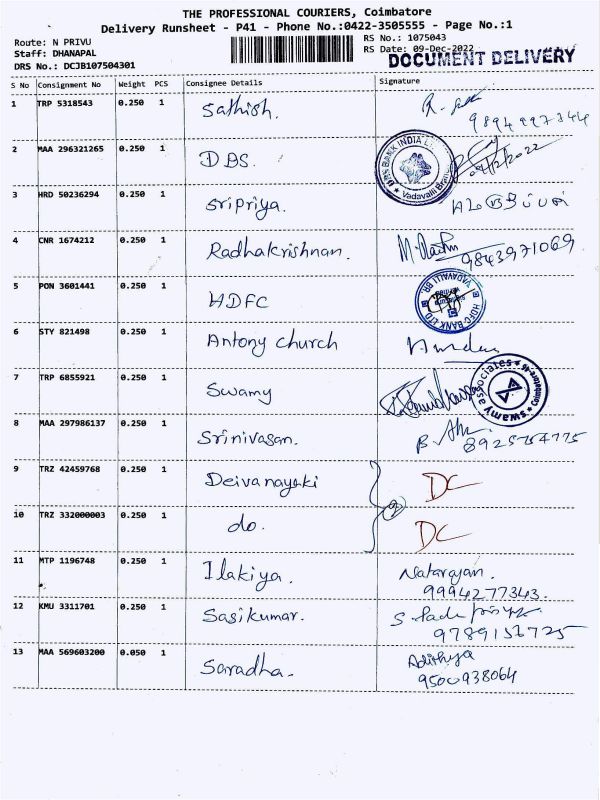 THE PROFESSIONAL COURIERS, Coimbatore
Delivery Runsheet - P41 - Phone No.:0422-3505555 - Page No.:1
Route: N PRIVU RS No.: 1075043
Staff: DHANAPAL RS Date: 09-Dec-2022
DRS No.: DCJB107504301 DOCUMENT DELIVERY
S No Consignment No Weight PCS Consignee Details Signature
1 TRP 5318543 0.250 1 Sathish.
2 MAA 296321265 0.250 1 DBS. DBS BANK INDIA Vadavalli Branch
3 HRD 50236294 0.250 1 Sripriya.
4 CNR 1674212 0.250 1 Radhakrishnan. 9843971069
5 PON 3601441 0.250 1 HDFC HDFC BANK LTD. VADAVALLI BR.
6 STY 821498 0.250 1 Antony church
7 TRP 6855921 0.250 1 Swamy swamy associates Coimbatore
8 MAA 297986137 0.250 1 Srinivasan.
9 TRZ 42459768 0.250 1 Deivanayaki DC
10 TRZ 332000003 0.250 1 do. DC
11 MTP 1196748 0.250 1 Ilakiya. Natarajan.
9994277343.
12 KMU 3311701 0.250 1 Sasikumar.
13 MAA 569603200 0.050 1 Saradha. Adithya
9500938064